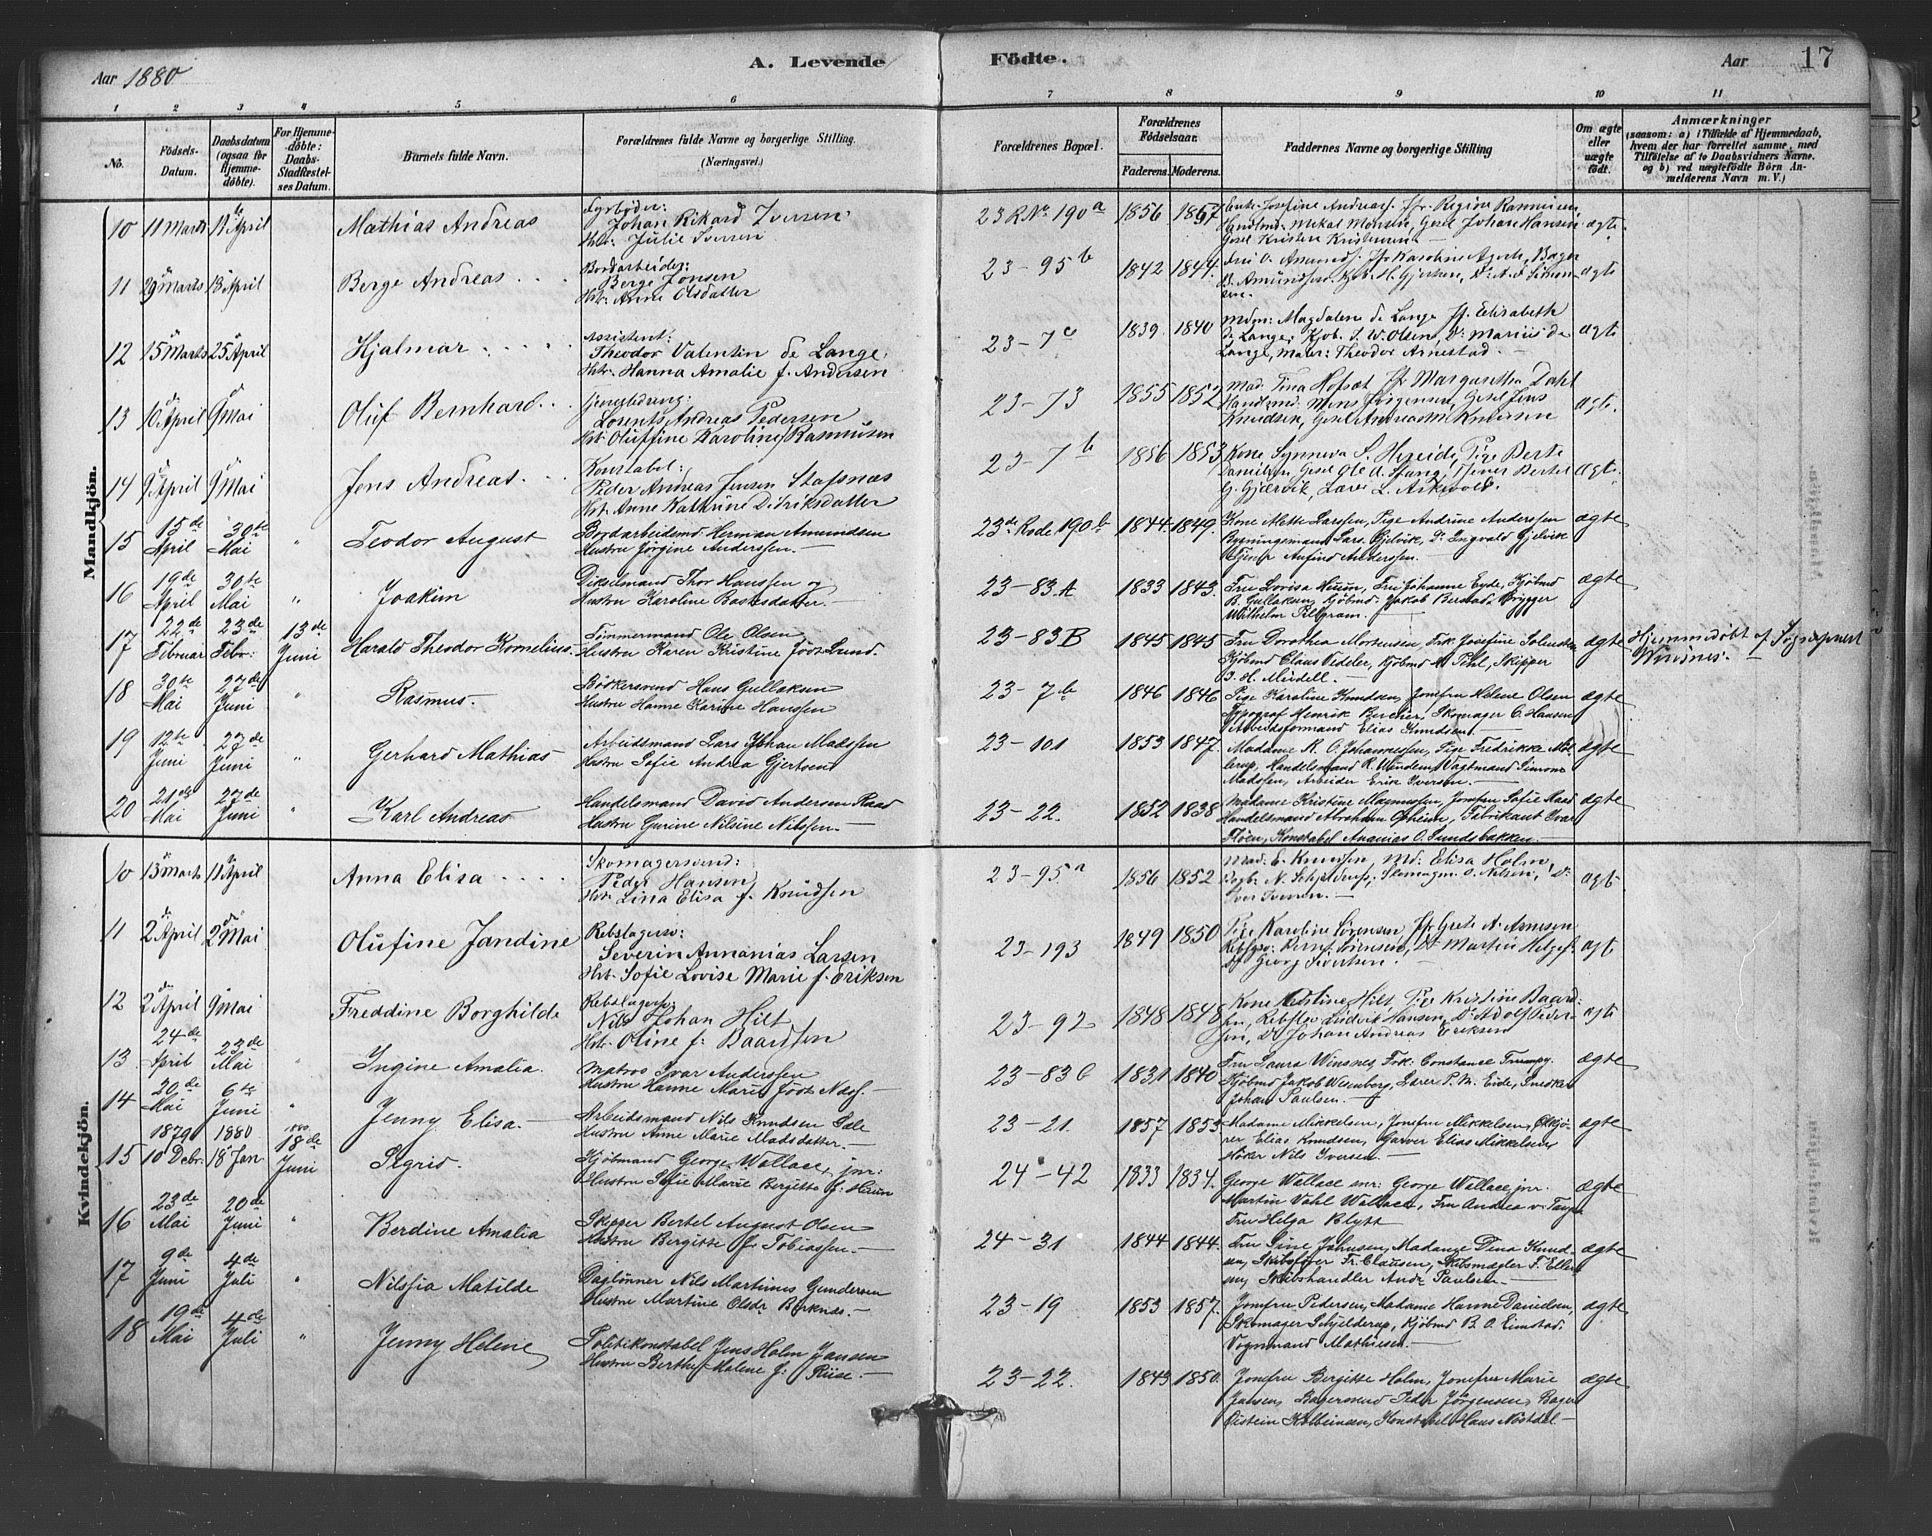 Aar 1880
A. Levende
Födte.
Aar
17
1 2 3 4 5 6 7 8 9 10 11
No.
Födsels-Datum.
Daabsdatum (ogsaa for Hjemme-döbte).
For Hjemme-döbte: Daabs-Stadfæstel-ses Datum.
Barnets fulde Navn.
Forældrenes fulde Navne og borgerlige Stilling. (Næringsvei.)
Forældrenes Bopæl.
Forældrenes Födselsaar.
Faderens. Moderens.
Faddernes Navne og borgerlige Stilling
Om ægte eller uægte födt.
Anmærkninger
(saasom: a) i Tilfælde af Hjemmedaab,
hvem der har forrettet samme, med
Tilföielse af to Daabsvidners Navne,
og b) ved uægtefödte Börn An-
melderens Navn m. V.)
Mandkjön.
10 11 Marts 11 April Mathias Andreas
Fyrböder:
Johan Rikard Iversen
Hst: Julie Iversen
23 R No 190a 1856 1857
Enke Josefine Andreas. Jfr Regine Rasmusen
Handlmd: Mikal Monsen, Gesel Johan Hansen
Gesel Kristen Kristensen
ægte
11 29 Marts 18 April Berge Andreas
Bordarbeider:
Berge Jonsen
Hst: Anne Olsdatter
23-95b 1842 1844
ægte
12 15 Marts 25 April Hjalmar
Assistent:
Theodor Valentin de Lange
Hst: Hanna Amalie f. Andersen
23-7c 1839 1840
Mdm: Magdalene de Lange Jf. Elisabeth
de Lange, Kjøb. S. W. Olsen, Do Marius de
Lange, Maler: Theodor Arnestad.
ægte
13 10 April 9 Mai Oluf Bernhard
Lorents Andreas Pedersen
Hst: Oluffine Karoline Rasmusen
23-73 1855 1852
Mad. Tina Hofsæt Jfr Margaretha Dahl
Handlsmd. Mons Jörgensen, Gesel Jens
Knudsen, Gesel Andreas M. Knudsen
ægte
14 9 April 9 Mai Jens Andreas
Konstabel:
Peder Andreas Jensen Stafsnæs
Hst: Anne Kathrine Didriksdatter
23-7b 1856 1853
Kone Synneva S. Hereide, Pige Berte
Danielsen, Gesel Ole A. Stang, Tjener Bertel
G. Gjærvik, Lars L. Askevold
ægte
15 15de April 30te Mai " Teodor August
Bordarbeidsmd Herman Amundsen
Hustru Jörgine Anderssen.
23de Rode 190b 1844. 1849.
Kone Mette Larssen, Pige Andrine Anderssen
Bygningsmand Lars Gjelvik, Do Ingvald Gjelvik
Tjener Anfind Anderssen.
ægte
16 19de April 30te Mai " Joakim
Dikselmand Thor Hanssen og
Hustru Karoline Bastesdatter.
23-83. A 1833 1843.
Fru Lovisa Heium, Fru Johanne Eyde, Kjöbmd
B. Gullaksen, Kjöbmd. Jakob Berstad, Brygger
Wilhelm Pilgram.
ægte
17 22de Februar 23de Febr: 13de Juni Harald Theodor Kornelius.
Tömmermand Ole Olsen
Hustru Karen Kristine födt Lund.
23-83 B 1845 1845
Fru Dorothea Mortensen, Frk. Josefine Solensten
Kjöbmd Claus Vedeler, Kjöbmd A. Pihl, Skipper
J. H. Meidell.
ægte
Hjemmedöbt af Sogneprest
Winsnes.
18 30te Mai 27de Juni " Rasmus.
Bödkersvend Hans Gullaksen
Hustru Hanne Karine Hanssen
23-7b 1846 1846
Pige Karoline Knudsen, Jomfru Helene Olsen
Typograf Henrik Bercher, Skomager C. Hansen
Arbeidsformand Elias Knudsen
ægte
19 12te Juni 27de Juni " Gerhard Mathias
Arbeidsmand Lars Johan Madssen
Hustru Sofie Andrea Gjertsen
23-101 1853 1847.
Madame K. O. Johannessen, Pige Fredrikke Møl-
lerup, Handelsmand R. Windem, Vagtmand Simon
Madssen, Arbeider Erik Iversen.
ægte
20 21de Mai 27de Juni " Karl Andreas
Handelsmand David Andersen Raad
Hustru Gurine Nilsine Nilssen.
23-22. 1852 1838
Madame Kristine Magnussen, Jomfru Sofie Raad
Handelsmand Abraham Opheim, Fabrikant Ivar
Fløen, Konstabel Ananias O. Sundsbakken.
ægte
Kvindekjön.
10 13 Marts 11 April Anna Elisa
Skomagersvend:
Peder Hansen
Hst: Lina Elisa f. Knudsen
23-95a 1856 1852
Mad: E. Knudsen, Md: Elisa Holm,
Iver Iversen.
ægt
11 2 April 2 Mai Olufine Jandine
Rebslagersv:
Severin Annanias Larsen
Hst: Sofie Lovise Marie f. Eriksen
23-193 1849 1850
Pige Karoline Sörensen, Jfr Grete A. Arnesen
Rebslsv: Bernt Sörensen, Do Martin Helges
Do Georg Sivertsen.
ægt
12 2 April 9 Mai Freddine Borghilde
Rebslagersv:
Nils Johan Hilt
Hst: Oline f. Baardsen
23-92 1848 1848
Hilt, Pige Kristine Baard-
sen, Rebslsv Ludvik Hansen, Do Adolf Peder-
sen, Do Johan Andreas Eriksen
ægte
13 24de April 23de Mai Ingine Amalia.
Matros Ivar Anderssen
Hustru Hanne Marie födt Næss.
23-83 1831 1840
Fru Laura Winsnes, Frk. Constanse Trumpy,
Kjöbmd Jakob Wesenberg, Lærer P. M. Eide, Snedker
Johan Paulsen.
ægte
14 20de Mai 6te Juni " Jenny Elisa.
Arbeidsmand Nils Knudsen Sæle
Hustru Anne Marie Madsdatter.
23-21. 1857 1853
Madame Mikkelsen, Jomfru Mikkelsen, Ölkjö-
rer Elias Knudsen, Garver Elias Mikkelsen
Høker Nils Iversen.
ægte
15 1879 10 Debr. 1880 18 Jan 18de Juni Sigrid.
Kjöbmand George Wallace jnr:
Hustru Sofie Marie Bergitte f. Heium
24-42 1833 1834.
George Wallace snr: George Wallace jnr.
Martin Vahl Wallace, Fru Andrea v. Tangen
Fru Helga Blytt
ægte
16 23de Mai 20de Juni " Berdine Amalia
Skipper Bertel August Olsen
Hustru Bergitte f. Tobiassen.
24-31 1844 1844.
Fru Sine Johnsen, Madame Dina Knud-
sen, Skibsförer Fr. Clausen, Skibsmægler F. Ellert-
sen, Skibshandler Andr. Paulsen.
ægte
17 9de Juni 4de Juli " Nilsfia Matilde
Daglönner Nils Martinus Gundersen
Hustru Martine Olsdr Berknæs.
23-19 1853 1857.
Jomfru Pedersen, Madame Hanne Danielsen,
Skomager Schjelderup, Kjöbmd B. O. Eimstad,
Vognmand Mathiesen.
ægte
18 19de Mai 4de Juli " Jenny Helene
Politikonstabel Jens Holm Jansen
Hustru Berthe Malene f: Riise.
23-22. 1843 1850.
Jomfru Bergitte Holm, Jomfru Marie
Jansen, Bagersvend Peder Jörgensen, Bager
Öistein Kolbeinsen, Konstabel Hans Nöstdal
ægte